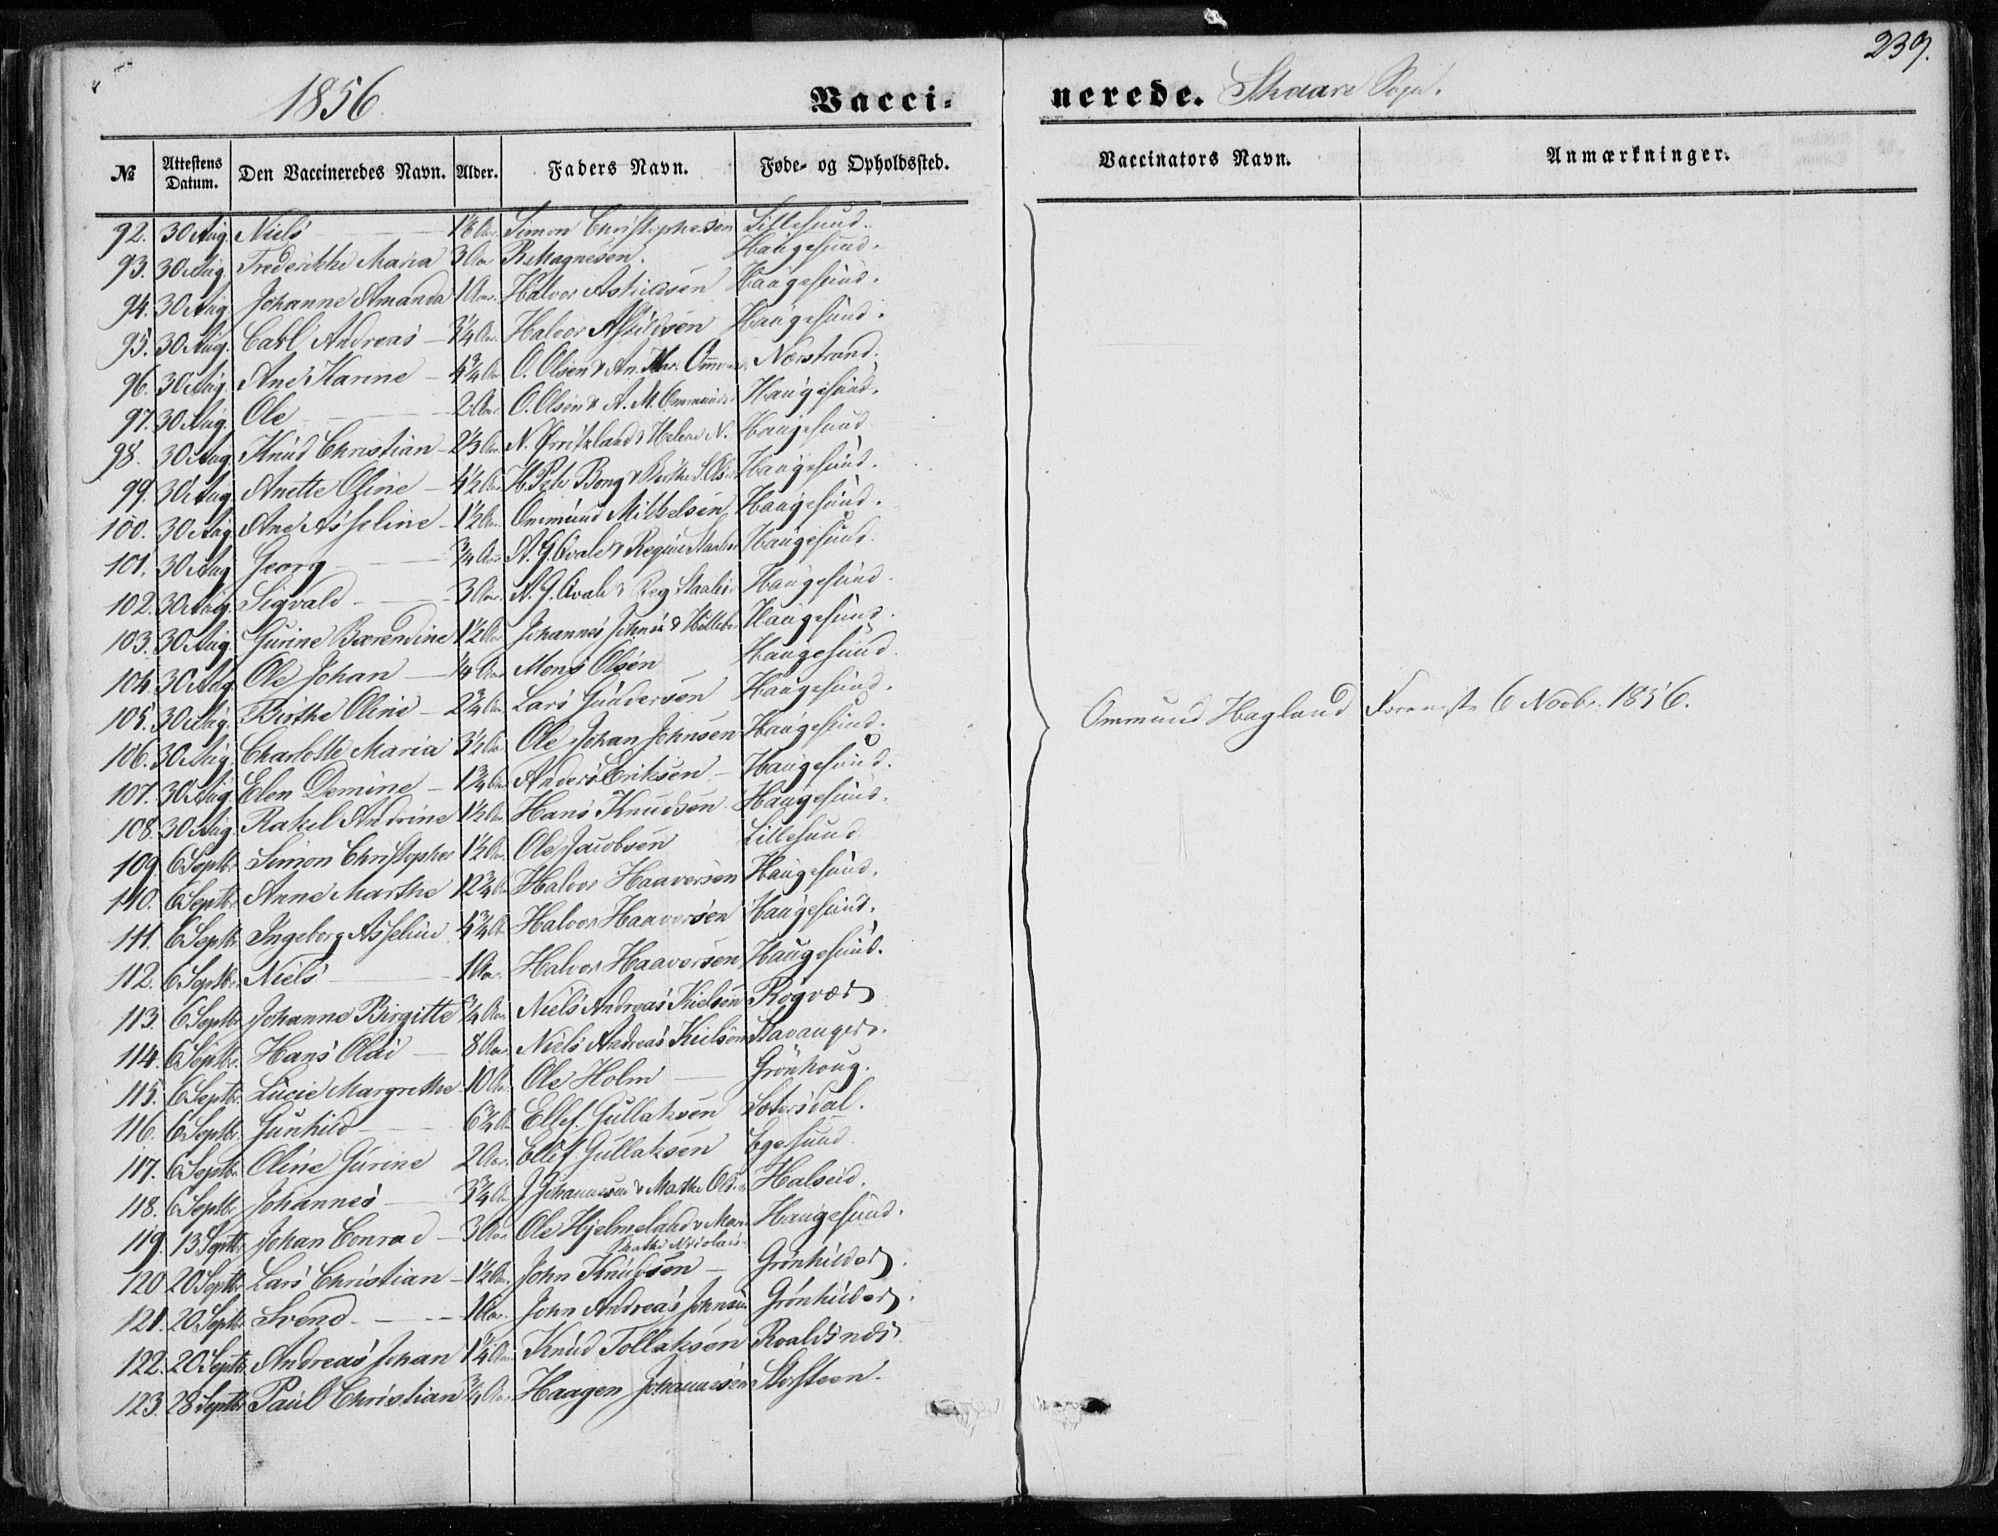 239.
1856. Vacci- nerede. Skaare Sogn.
№ Attestens Datum. Den Vaccineredes Navn. Alder. Faders Navn. Føde- og Opholdssted. Vaccinators Navn. Anmærkninger.
92. 30 Aug. Niels Aar Simon Christophersen Lillesund.
93. 30 Aug. Frederikke Maria 3 Aar R. Magnesen. Haugesund.
94. 30 Aug. Johanne Amanda 1 Aar. Halvor Haugesund.
95. 30 Aug. Carl Andreas 3¼ Aar. Halvor Haugesund.
96. 30 Aug. Ane Karine 4¾ Aar O. Olsen & An. Mar. Nærstrand.
97. 30 Aug. Ole 2 Aar O. Olsen & A. M. Haugesund.
98. 30 Aug. Knud Christian Aar N. & Helene N. Haugesund
99. 30 Aug. Anette Oline 4½ Aar H. Peter Bong & Berthe S. Haugesund.
100. 30 Aug. Ane Asseline 1½ Aar. Ommund Mikkelsen Haugesund.
101. 30 Aug. Georg ¾ Aar A. G. Qvale & Regine Haugesund.
102. 30 Aug. Sigvald 3 Aar. A. G. Qvale & Reg Haugesund.
103. 30 Aug. Gurine Barendine 1½ Aar Johannes Johnsen & Haugesund.
104. 30 Aug. Ole Johan ¼ Aar Mons Olsen Haugesund.
105. 30 Aug. Birthe Oline 2¾ Aar Lars Gundersen Haugesund.
106. 30 Aug. Charlotte Maria 3½ Aar Ole Johan Johnsen Haugesund.
Ommund Hagland 6 Novbr. 1856.
107. 30 Aug. Elen Demine 1¾ Aar Anders Eriksen Haugesund.
108. 30 Aug. Rakel Andrine 1½ Aar Hans Knudsen Haugesund.
109 6 Septbr. Simon Christopher 1½ Aar. Ole Jacobsen Lillesund
110. 6 Septbr. Anne Marthe 12¾ Aar Halvor Haaversen Haugesund.
111. 6 Septbr. Ingeborg Asseline 4¾ Aar Halvor Haaversen Haugesund.
112. 6 Septbr. Niels 1 Aar. Halvor Haaversen Haugesund.
113. 6 Septbr. Johanne Birgitte ¾ Aar Niels Andreas Kielsen Røgvær
114. 6 Septbr. Hans Olai 8 Aar. Niels Andreas Kielsen Stavanger.
115. 6 Septbr. Lucie Margrethe 10 Aar Ole Holm Grønhoug.
116. 6 Septbr. Gunhild 6¾ Aar Ellef Gullaksen Sætersdal.
117. 6 Septbr. Oline Gurine 2 Aar. Ellef Gullaksen Egersund.
118. 6 Septbr Johannes 3¾ Aar J. Johannesen & Marthe Halseid.
119. 13 Septbr. Johan Conrad 3 Aar Ole Hjelmeland Haugesund.
120 20 Septbr. Lars Christian 1½ Aar. John Knudsen Grønhilder.
121. 20 Septbr. Svend 1 Aar. John Andreas Johnsen Grønhilder.
122. 20 Septbr. Andreas Johan 1¼ Aar. Knud Tollaksen
123. 28 Septbr. Paul Christian ¾ Aar. Haagen Johannesen Storsteen.